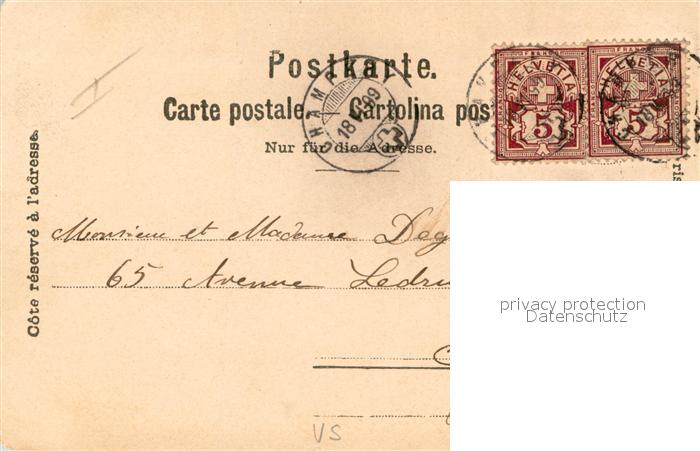 Postkarte.
Carte postale. Cartolina pos
Nur für die Adresse.
Côte réservé à l'adresse.
HELVETIA HELVETIA
FRANCO FRANCO
5 5
18 99
Monsieur et Madame Deg
65 Avenue Ledru
privacy protection
Datenschutz
VS